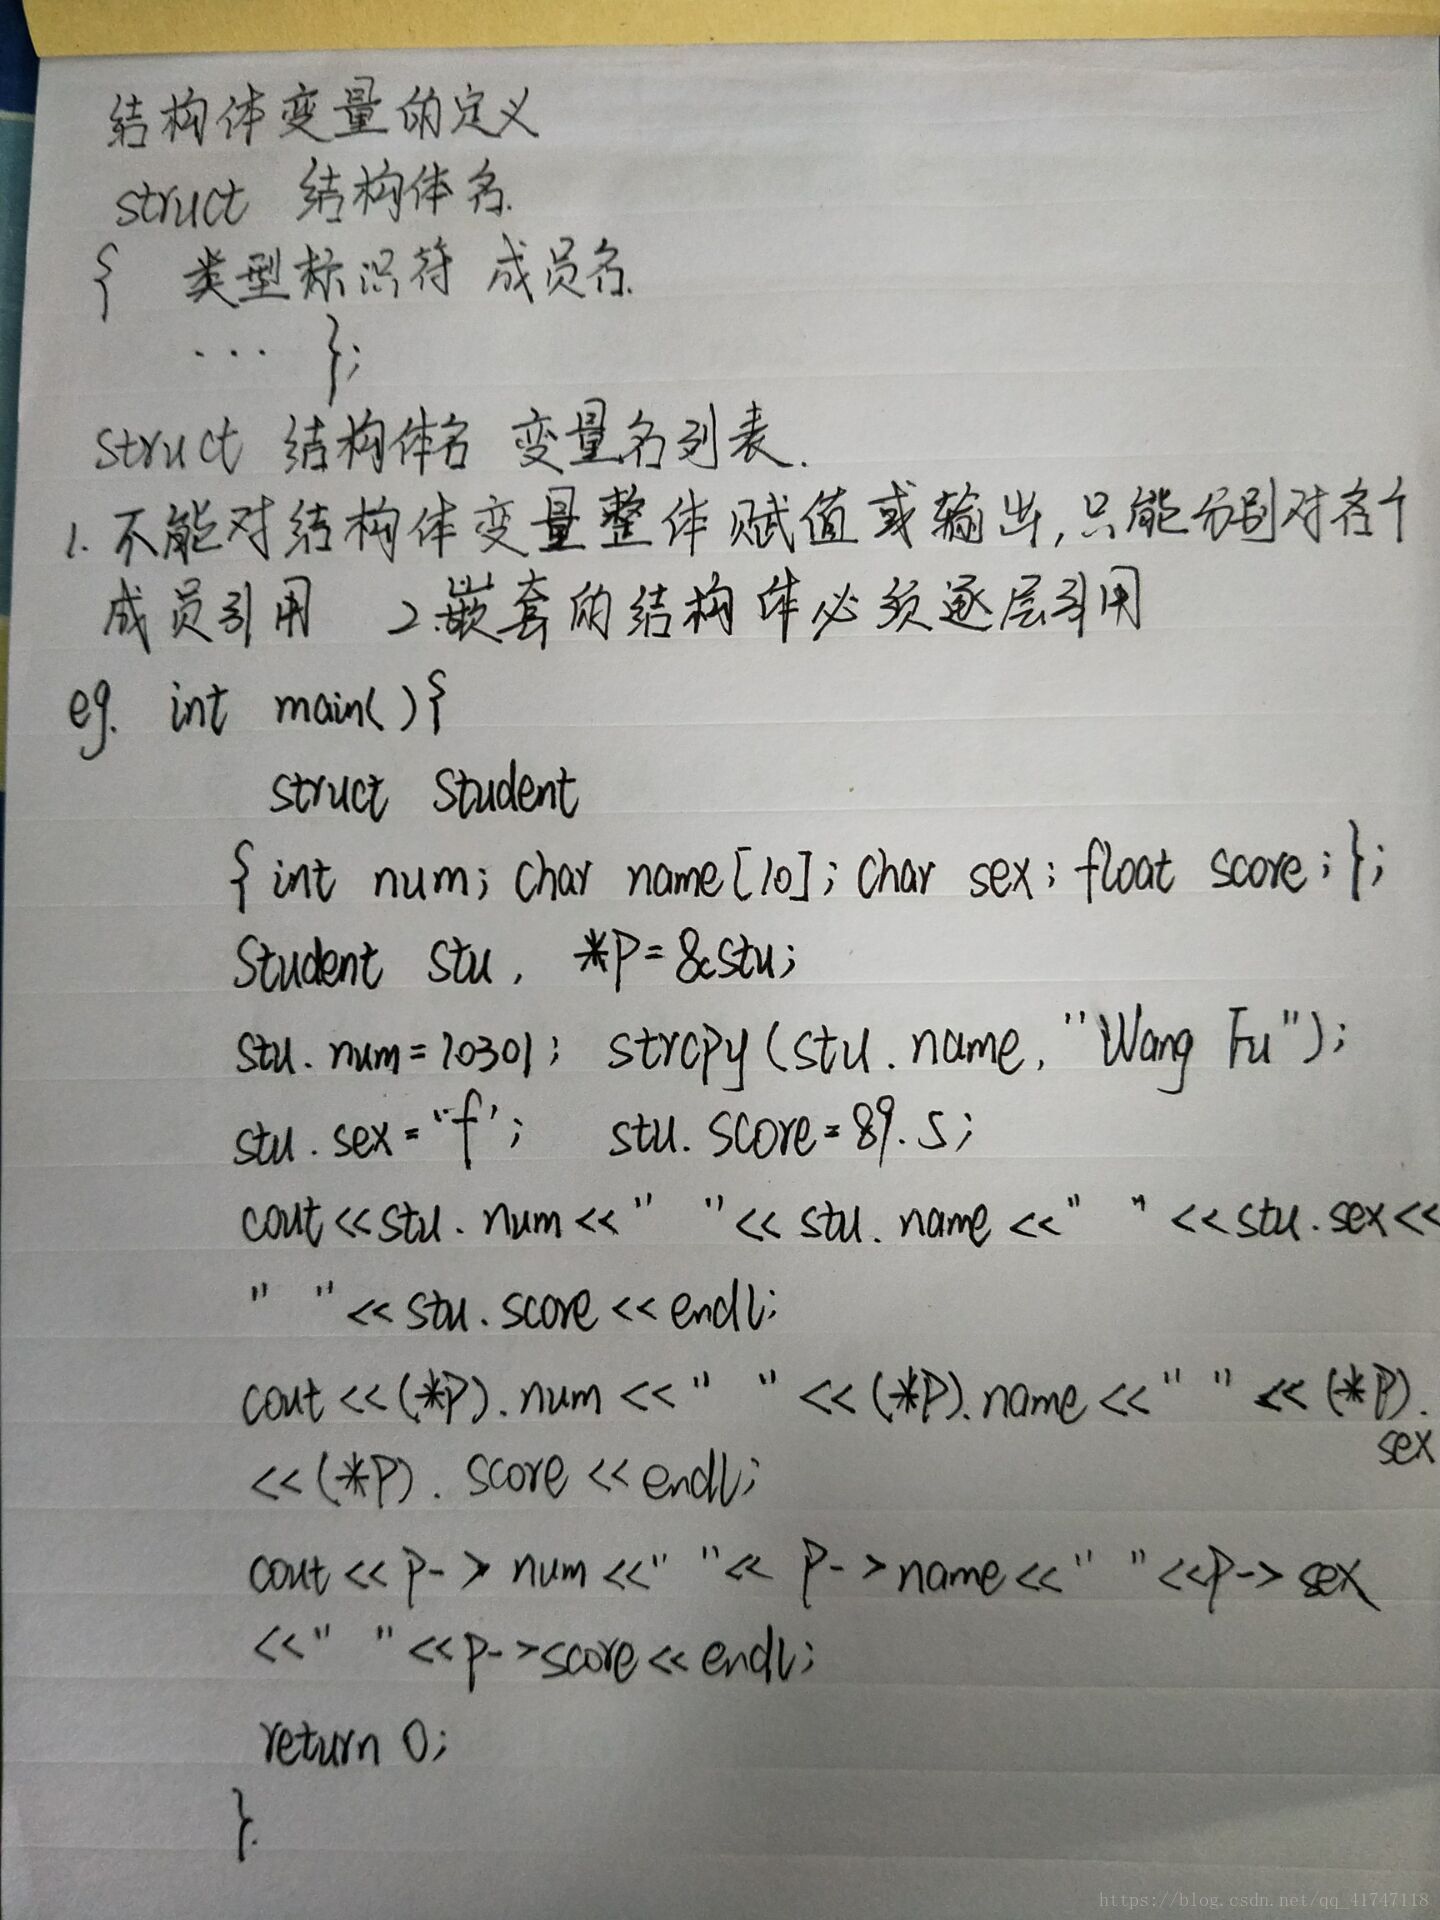 结构体变量的定义
struct 结构体名.
{ 类型标识符 成员名.
... };
struct 结构体名 变量名列表.
1. 不能对结构体变量整体赋值或输出,只能分别对各个
成员引用 2.嵌套的结构体必须逐层引用
eg. int main(){
struct Student
{ int num; char name[10]; char sex; float score; };
Student stu, *P=&stu;
stu.num=10301; strcpy(stu.name, "Wang Fu");
stu.sex='f'; stu.score=89.5;
cout<<stu.num<<" "<<stu.name<<" "<<stu.sex<<
" "<<stu.score<<endl;
cout<<(*P).num<<" "<<(*P).name<<" "<<(*P).
sex
<<(*P).score<<endl;
cout<<P->num<<" "<<P->name<<" "<<P->sex
<<" "<<P->score<<endl;
return 0;
}.
https://blog.csdn.net/qq_41747118